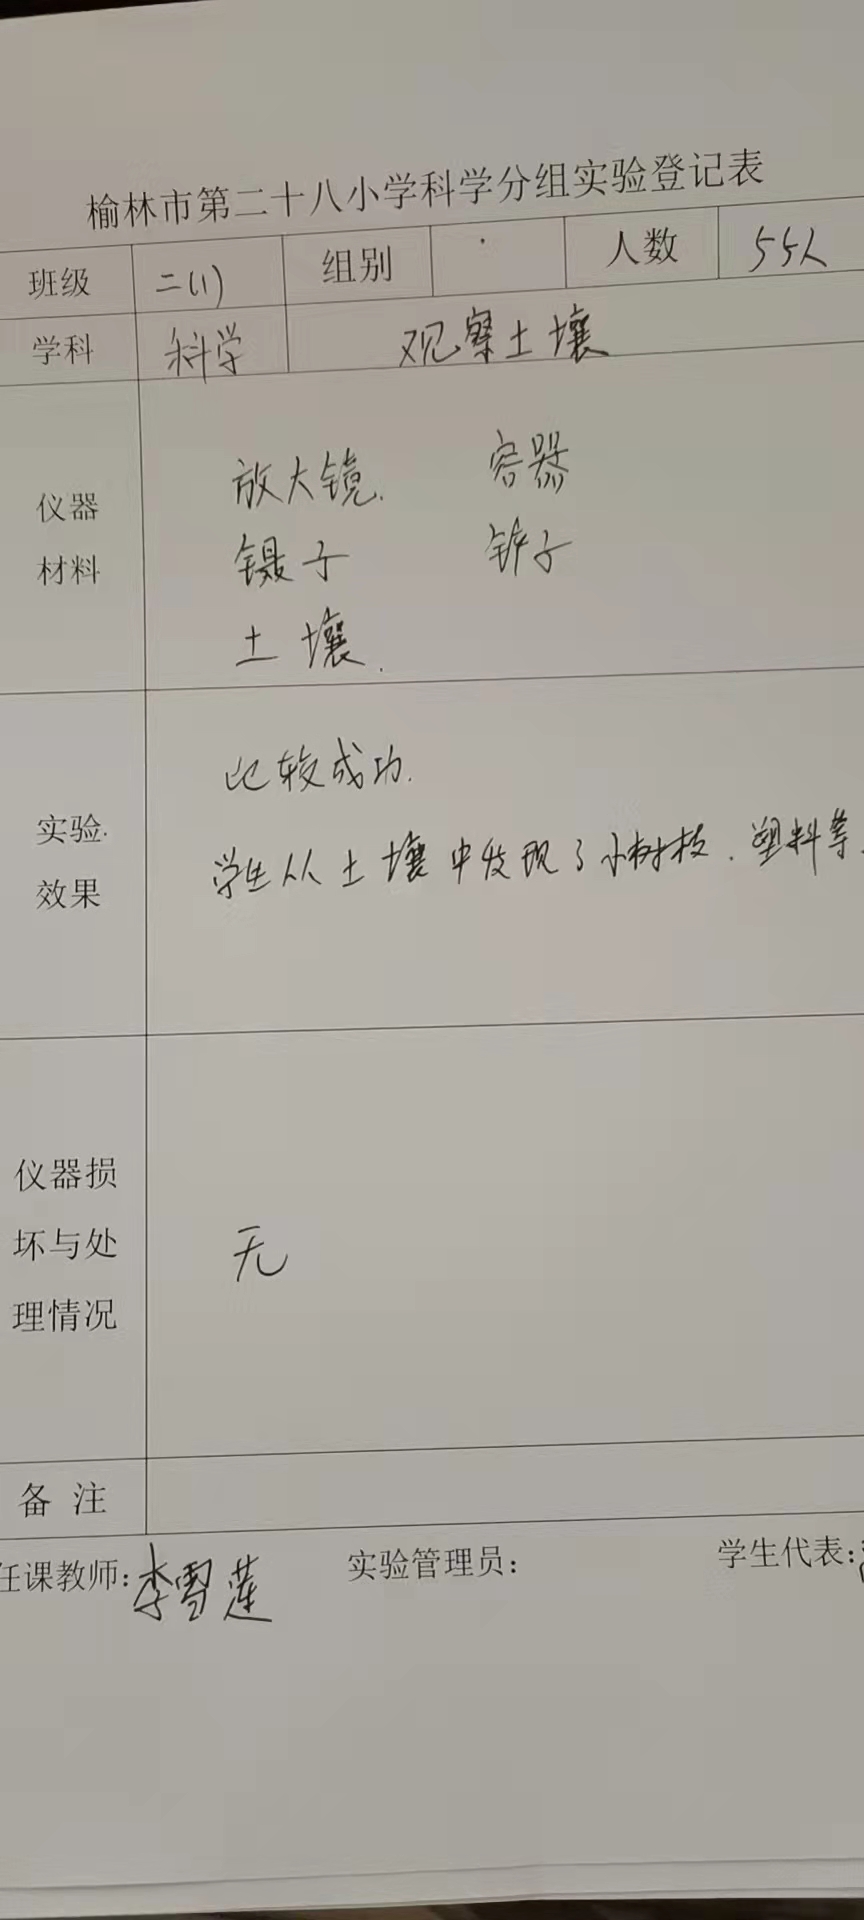 榆林市第二十八小学科学分组实验登记表
班级 二(1) 组别 人数 55人
学科 科学 观察土壤
仪器
材料
放大镜. 容器
镊子 铲子
土壤.
实验
效果
比较成功.
学生从土壤中发现了小树枝、塑料等.
仪器损
坏与处
理情况
无
备 注
任课教师：李雪莲 实验管理员： 学生代表：